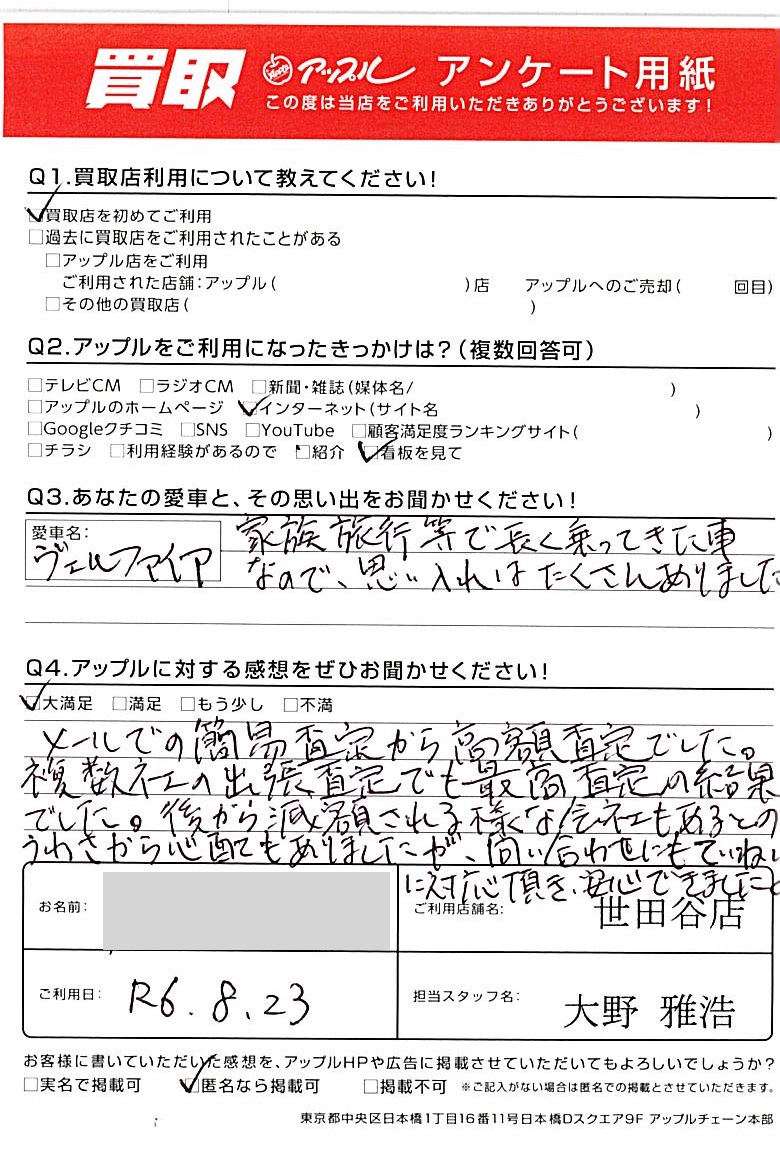 買取 アップル アンケート用紙
この度は当店をご利用いただきありがとうございます!
Q1.買取店利用について教えてください!
☑買取店を初めてご利用
□過去に買取店をご利用されたことがある
□アップル店をご利用
ご利用された店舗:アップル( )店 アップルへのご売却( 回目)
□その他の買取店( )
Q2.アップルをご利用になったきっかけは?(複数回答可)
□テレビCM □ラジオCM □新聞・雑誌(媒体名/ )
□アップルのホームページ ☑インターネット(サイト名 )
□Googleクチコミ □SNS □YouTube □顧客満足度ランキングサイト( )
□チラシ □利用経験があるので □紹介 ☑看板を見て
Q3.あなたの愛車と、その思い出をお聞かせください!
愛車名:
ヴェルファイア
家族旅行等で長く乗ってきた車
なので、思い入れはたくさんありました
Q4.アップルに対する感想をぜひお聞かせください!
☑大満足 □満足 □もう少し □不満
メールでの簡易査定から高額査定でした。
複数社の出張査定でも最高査定の結果
でした。後から減額される様な会社もあるとの
うわさから心配もありましたが、問い合わせにもていねい
に対応頂き、安心できました
お名前:
ご利用店舗名: 世田谷店
ご利用日: R6.8.23
担当スタッフ名: 大野 雅浩
お客様に書いていただいた感想を、アップルHPや広告に掲載させていただいてもよろしいでしょうか?
□実名で掲載可 ☑匿名なら掲載可 □掲載不可 ※ご記入がない場合は匿名での掲載とさせていただきます。
東京都中央区日本橋1丁目16番11号日本橋Dスクエア9F アップルチェーン本部